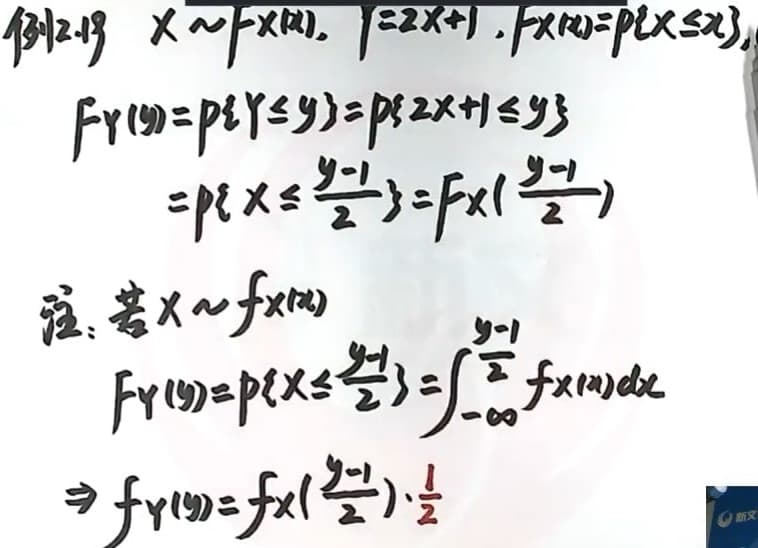 例2.19 X～F_X(x), Y=2X+1, F_X(x)=P{X≤x},
F_Y(y)=P{Y≤y}=P{2X+1≤y}
=P{X≤\frac{y-1}{2}}=F_X(\frac{y-1}{2})
注:若X～f_X(x)
F_Y(y)=P{X≤\frac{y-1}{2}}=∫_{-∞}^{\frac{y-1}{2}} f_X(x)dx
⇒ f_Y(y)=f_X(\frac{y-1}{2})·\frac{1}{2}
新文